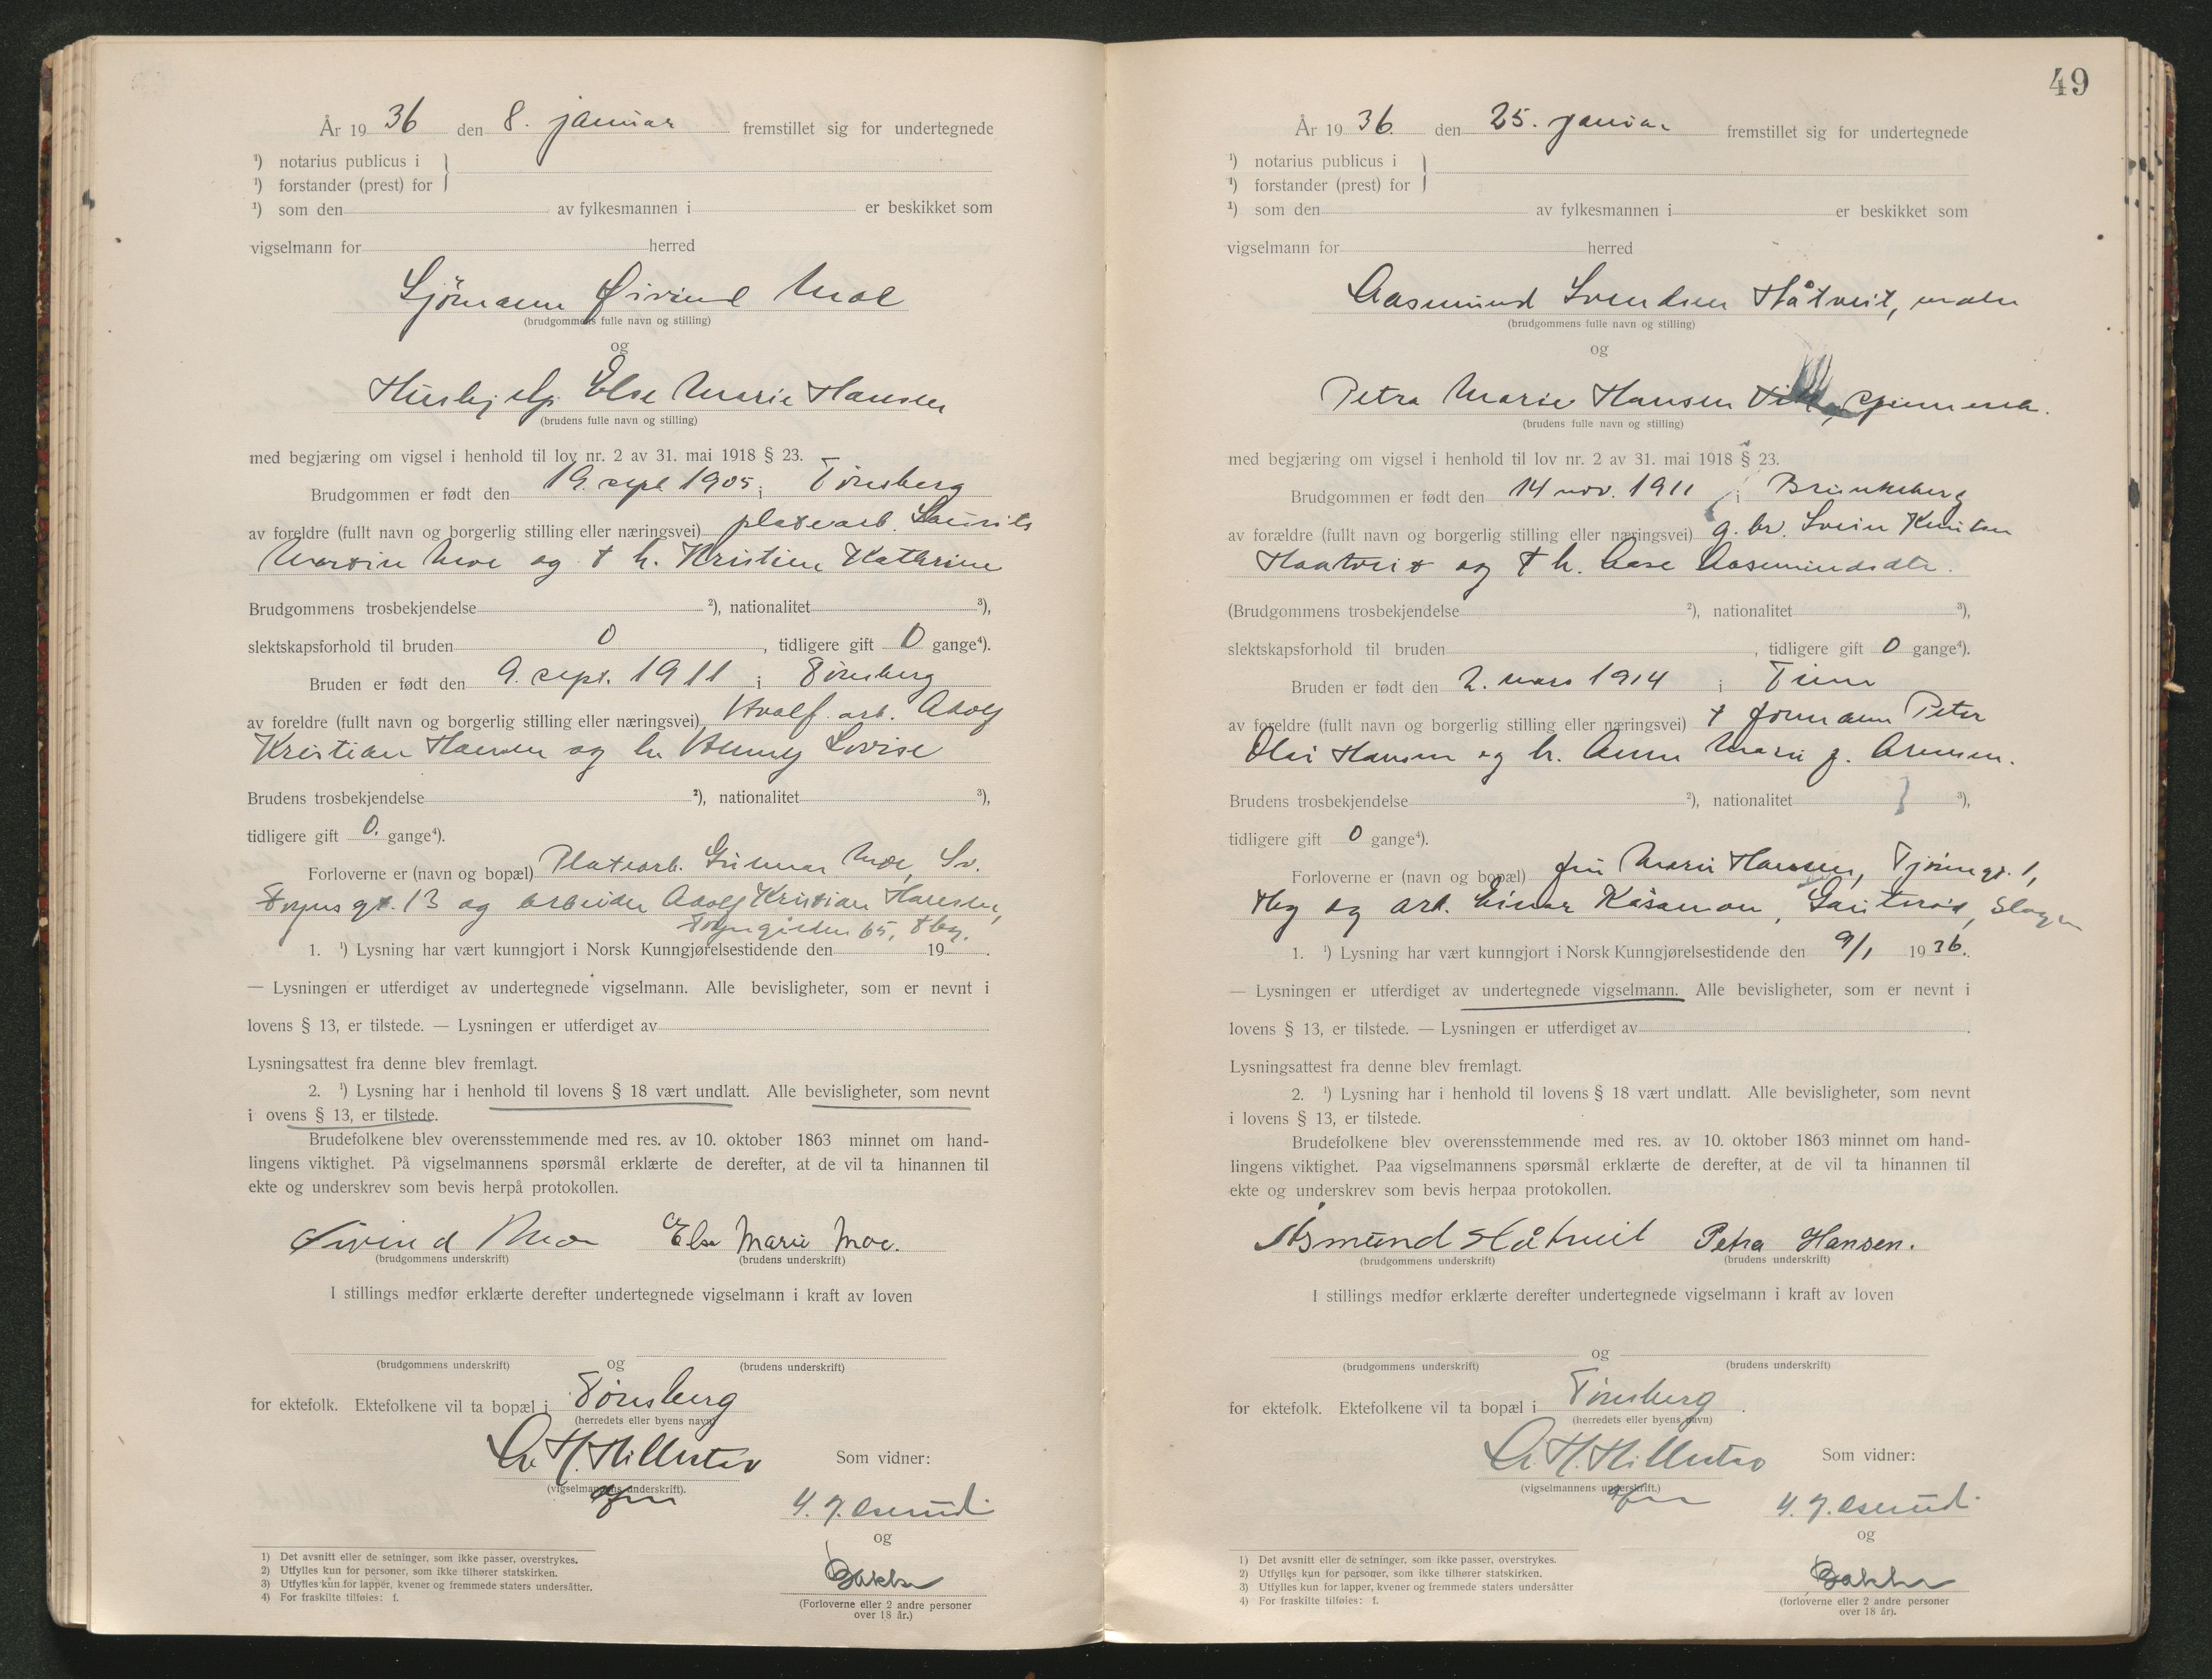 År 19 36 den 8. januar fremstillet sig for undertegnede
¹) notarius publicus i
¹) forstander (prest) for
¹) som den av fylkesmannen i er beskikket som
vigselmann for herred
Sjömann Øivind Moe
(brudgommens fulle navn og stilling)
og
Hushjelp Else Marie Hansen
(brudens fulle navn og stilling)
med begjæring om vigsel i henhold til lov nr. 2 av 31. mai 1918 § 23.
Brudgommen er født den 19. sept. 1905 i Tönsberg
av foreldre (fullt navn og borgerlig stilling eller næringsvei) platearb. Laurits
Martin Moe og † h. Kristine Kathrine
Brudgommens trosbekjendelse ²), nationalitet ³),
slektskapsforhold til bruden 0, tidligere gift 0 gange⁴).
Bruden er født den 9. sept. 1911 i Tönsberg
av foreldre (fullt navn og borgerlig stilling eller næringsvei) Hvalf. arb. Adolf
Kristian Hansen og h. Henny Lovise
Brudens trosbekjendelse ²), nationalitet ³),
tidligere gift 0. gange⁴).
Forloverne er (navn og bopæl) Platearb. Gunnar Moe, Sv.
Foynsgt. 13 og arbeider Adolf Kristian Hansen,
65, Tbg.
1. ¹) Lysning har vært kunngjort i Norsk Kunngjørelsestidende den 19 .
— Lysningen er utferdiget av undertegnede vigselmann. Alle bevisligheter, som er nevnt i
lovens § 13, er tilstede. — Lysningen er utferdiget av
Lysningsattest fra denne blev fremlagt.
2. ¹) Lysning har i henhold til lovens § 18 vært undlatt. Alle bevisligheter, som nevnt
i ovens § 13, er tilstede.
Brudefolkene blev overensstemmende med res. av 10. oktober 1863 minnet om hand-
lingens viktighet. På vigselmannens spørsmål erklærte de derefter, at de vil ta hinannen til
ekte og underskrev som bevis herpå protokollen.
Øivind Moe Else Marie Moe.
(brudgommens underskrift) (brudens underskrift)
I stillings medfør erklærte derefter undertegnede vigselmann i kraft av loven
og
(brudgommens underskrift) (brudens underskrift)
for ektefolk. Ektefolkene vil ta bopæl i Tönsberg
(herredets eller byens navn)
H. Hillestad Som vidner:
(vigselmannens underskrift).
og
Bakke
(Forloverne eller 2 andre personer
over 18 år.)
1) Det avsnitt eller de setninger, som ikke passer, overstrykes.
2) Utfylles kun for personer, som ikke tilhører statskirken.
3) Utfylles kun for lapper, kvener og fremmede staters undersåtter.
4) For fraskilte tilføies: f.
49
År 19 36 den 25. januar fremstillet sig for undertegnede
¹) notarius publicus i
¹) forstander (prest) for
¹) som den av fylkesmannen i er beskikket som
vigselmann for herred
Aasmund Svendsen Håtveit, maler
(brudgommens fulle navn og stilling)
og
Petra Marie Hansen
(brudens fulle navn og stilling)
med begjæring om vigsel i henhold til lov nr. 2 av 31. mai 1918 § 23.
Brudgommen er født den 14 nov. 1911 i Brunkeberg
av forældre (fullt navn og borgerlig stilling eller næringsvei) g. br. Svein Knutsen
Haatveit og † h. Aase Aasmundsdtr.
(Brudgommens trosbekjendelse ²), nationalitet ³),
slektskapsforhold til bruden , tidligere gift 0 gange⁴).
Bruden er født den 2. mars 1914 i
av foreldre (fullt navn og borgerlig stilling eller næringsvei) † Peter
Olai Hansen og h. Anna Marie f. Arnesen.
Brudens trosbekjendelse ²), nationalitet ³),
tidligere gift 0 gange⁴).
Forloverne er (navn og bopæl) fru Marie Hansen, 1,
Tbg og arb. Einar Slagen
1. ¹) Lysning har vært kunngjort i Norsk Kunngjørelsestidende den 9/1 1936.
— Lysningen er utferdiget av undertegnede vigselmann. Alle bevisligheter, som er nevnt i
lovens § 13, er tilstede. — Lysningen er utferdiget av .
Lysningsattest fra denne blev fremlagt.
2. ¹) Lysning har i henhold til lovens § 18 vært undlatt. Alle bevisligheter, som nevnt
i lovens § 13, er tilstede.
Brudefolkene blev overensstemmende med res. av 10. oktober 1863 minnet om hand-
lingens viktighet. Paa vigselmannens spørsmål erklærte de derefter, at de vil ta hinannen til
ekte og underskrev som bevis herpaa protokollen.
Åsmund Håtveit Petra Hansen.
(brudgommens underskrift) (brudens underskrift)
I stillings medfør erklærte derefter undertegnede vigselmann i kraft av loven
og
(brudgommens underskrift) (brudens underskrift)
for ektefolk. Ektefolkene vil ta bopæl i Tönsberg.
(herredets eller byens navn)
H. Hillestad Som vidner:
(vigselmannens underskrift.)
og
Bakke
(forloverne eller 2 andre personer
over 18 år).
1) Det avsnitt eller de setninger, som ikke passer, overstrykes.
2) Utfylles kun for personer, som ikke tilhører statskirken.
3) Utfylles kun for lapper, kvener og fremmede staters undersåtter
4) For fraskilte tilføies: f.